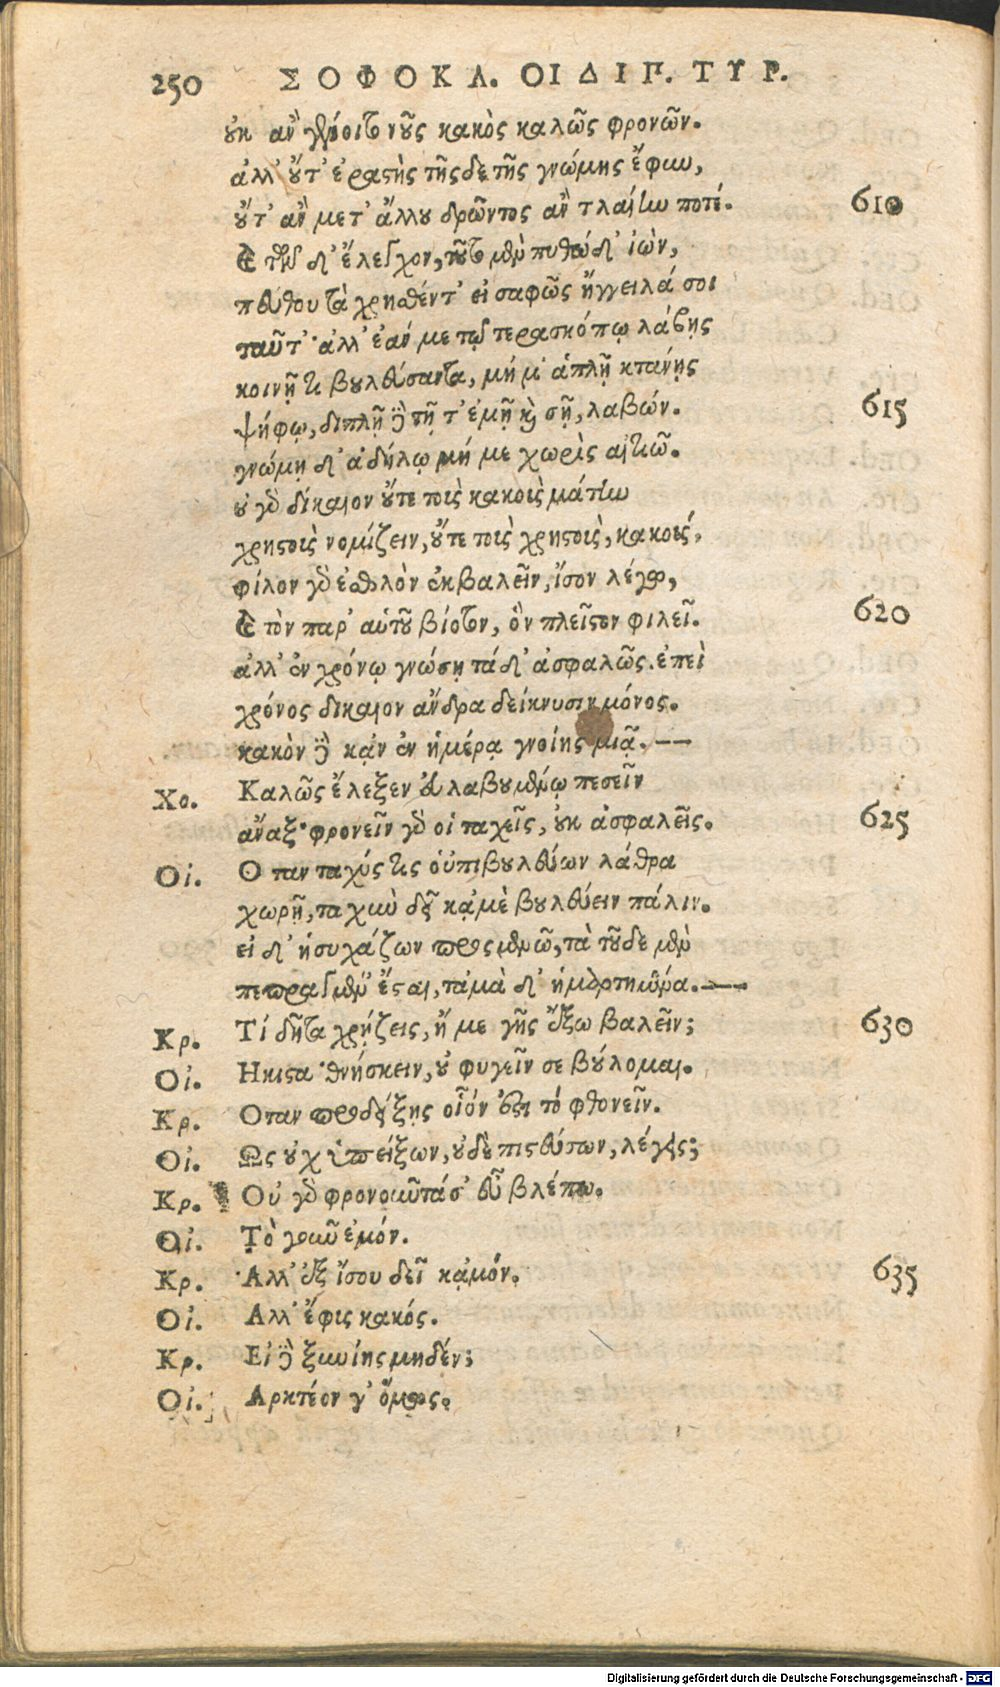 250 ΣΟΦΟΚΛ. ΟΙΔΙΠ. ΤΥΡ.
οὐκ ἂν γένοιτο νοῦς κακὸς καλῶς φρονῶν.
ἀλλ' οὔτ' ἐραστὴς τῆσδε τῆς γνώμης ἔφυν,
οὔτ' ἂν μετ' ἄλλου δρῶντος ἂν τλαίην ποτέ. 610
καὶ τῶνδ' ἔλεγχον, τοῦτο μὲν πυθώδ' ἰὼν,
πεύθου τὰ χρησθέντ' εἰ σαφῶς ἤγγειλά σοι
ταῦτ'· ἀλλ' ἐάν με τῷ τερασκόπῳ λάβῃς
κοινῇ τι βουλεύσαντα, μή μ' ἁπλῇ κτάνῃς
ψήφῳ, διπλῇ δὲ τῇ τ' ἐμῇ καὶ σῇ, λαβών. 615
γνώμῃ δ' ἀδήλῳ μή με χωρὶς αἰτιῶ.
οὐ γὰρ δίκαιον οὔτε τοὶς κακοὶς μάτην
χρηστοὶς νομίζειν, οὔτε τοὶς χρηστοὶς, κακούς.
φίλον γὰρ ἐσθλὸν ἐκβαλεῖν, ἴσον λέγω,
καὶ τὸν παρ' αὑτοῦ βίοτον, ὃν πλεῖστον φιλεῖ. 620
ἀλλ' ἐν χρόνῳ γνώσῃ τάδ' ἀσφαλῶς. ἐπεὶ
χρόνος δίκαιον ἄνδρα δείκνυσιν μόνος.
κακὸν δὲ κἂν ἐν ἡμέρᾳ γνοίης μιᾷ.--
Χο. Καλῶς ἔλεξεν εὐλαβουμένῳ πεσεῖν
ἄναξ· φρονεῖν γὰρ οἱ ταχεῖς, οὐκ ἀσφαλεῖς. 625
Οἰ. Ὅταν ταχύς τις οὑπιβουλεύων λάθρα
χωρῇ, ταχὺν δεῖ κἀμὲ βουλεύειν πάλιν.
εἰ δ' ἡσυχάζων προσμενῶ, τὰ τοῦδε μὲν
πεπραγμέν' ἔσται, τἀμὰ δ' ἡμαρτημένα.--
Κρ. Τί δῆτα χρῄζεις, ἤ με γῆς ἔξω βαλεῖν; 630
Οἰ. Ηκιστα· θνήσκειν, οὐ φυγεῖν σε βούλομαι.
Κρ. Οταν προδείξῃς οἷόν ἐστι τό φθονεῖν.
Οἰ. Ως οὐχ ὑπείξων, οὐδὲ πιστεύσων, λέγεις;
Κρ. Οὐ γὰρ φρονοῦντά σ' εὖ βλέπω.
Οἰ. Τὸ γοῦν ἐμόν.
Κρ. Αλλ' ἐξ ἴσου δεῖ κἀμόν. 635
Οἰ. Αλλ' ἔφυς κακός.
Κρ. Εἰ δὲ ξυνίης μηδέν;
Οἰ. Αρκτέον γ' ὅμως.
Digitalisierung gefördert durch die Deutsche Forschungsgemeinschaft - DFG